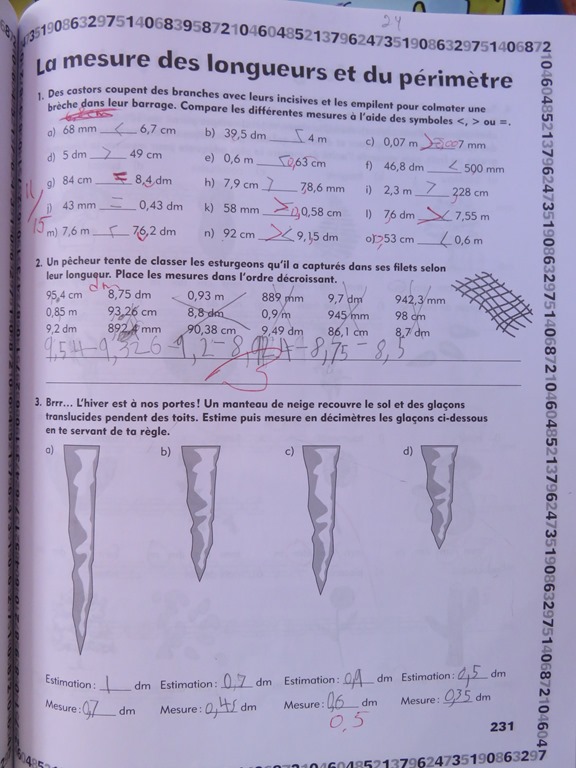 24
735190863297514068395872104604852137962473519086329751406872
La mesure des longueurs et du périmètre
1. Des castors coupent des branches avec leurs incisives et les empilent pour colmater une
brèche dans leur barrage. Compare les différentes mesures à l'aide des symboles <, > ou =.
a) 68 mm < 6,7 cm b) 39,5 dm < 4 m c) 0,07 m > 7 mm
d) 5 dm > 49 cm e) 0,6 m < 0,63 cm f) 46,8 dm < 500 mm
g) 84 cm = 8,4 dm h) 7,9 cm > 78,6 mm i) 2,3 m > 228 cm
j) 43 mm = 0,43 dm k) 58 mm > 0,58 cm l) 76 dm > 7,55 m
m) 7,6 m < 76,2 dm n) 92 cm > < 9,15 dm o) 53 cm < 0,6 m
11/15
2. Un pêcheur tente de classer les esturgeons qu'il a capturés dans ses filets selon
leur longueur. Place les mesures dans l'ordre décroissant.
dm
95,4 cm 8,75 dm 0,93 m 889 mm 9,7 dm 942,3 mm
0,85 m 93,26 cm 8,8 dm 0,9 m 945 mm 98 cm
9,2 dm 892,4 mm 90,38 cm 9,49 dm 86,1 cm 8,7 dm
9,54 - 9,326 - 9,2 - 8,924 - 8,75 - 8,5
3. Brrr... L'hiver est à nos portes! Un manteau de neige recouvre le sol et des glaçons
translucides pendent des toits. Estime puis mesure en décimètres les glaçons ci-dessous
en te servant de ta règle.
a) b) c) d)
Estimation : 1 dm Estimation : 0,7 dm Estimation : 0,9 dm Estimation : 0,5 dm
Mesure : 0,7 dm Mesure : 0,45 dm Mesure : 0,6 dm Mesure : 0,35 dm
0,5
231